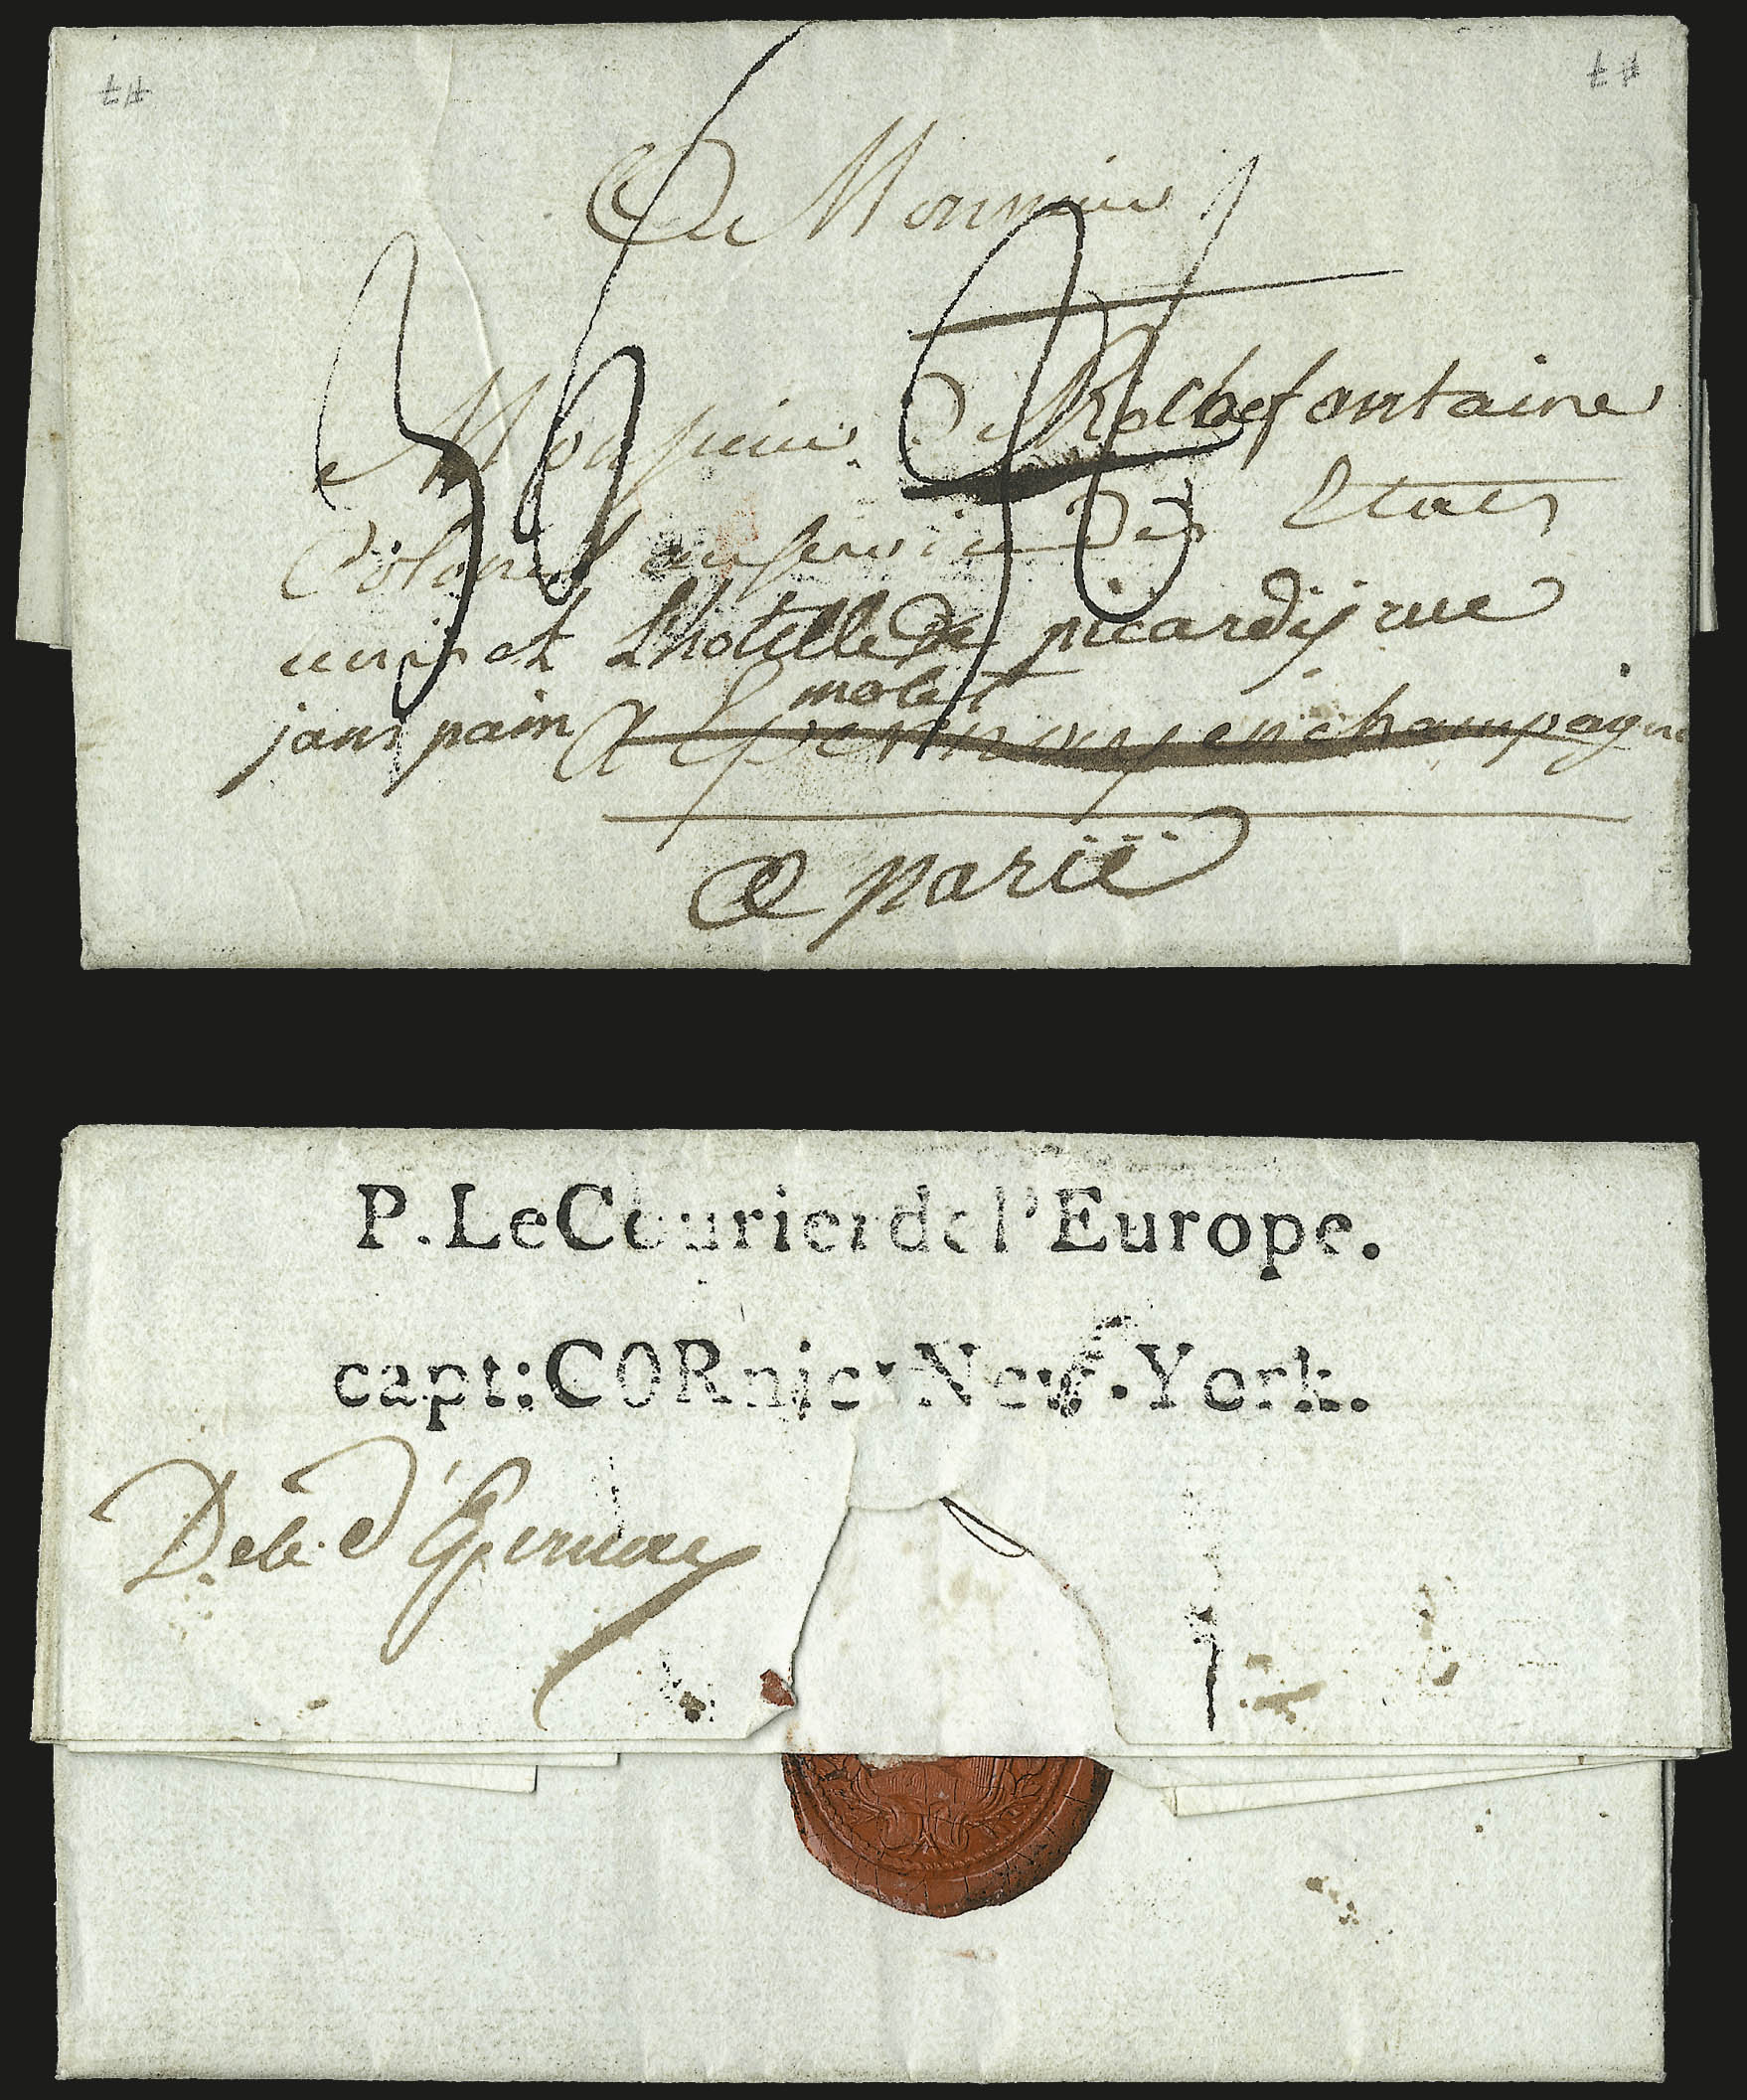 A Monsieur
Monsieur De Rochefontaine
Colonel au service Des Etats
unis et L'hotelle de picardij rue
jans pain molet A Epernay en champagne
a Parii
P. Le Courier de l'Europe.
capt: CORnic. New.York.
Deb. d'Epernay